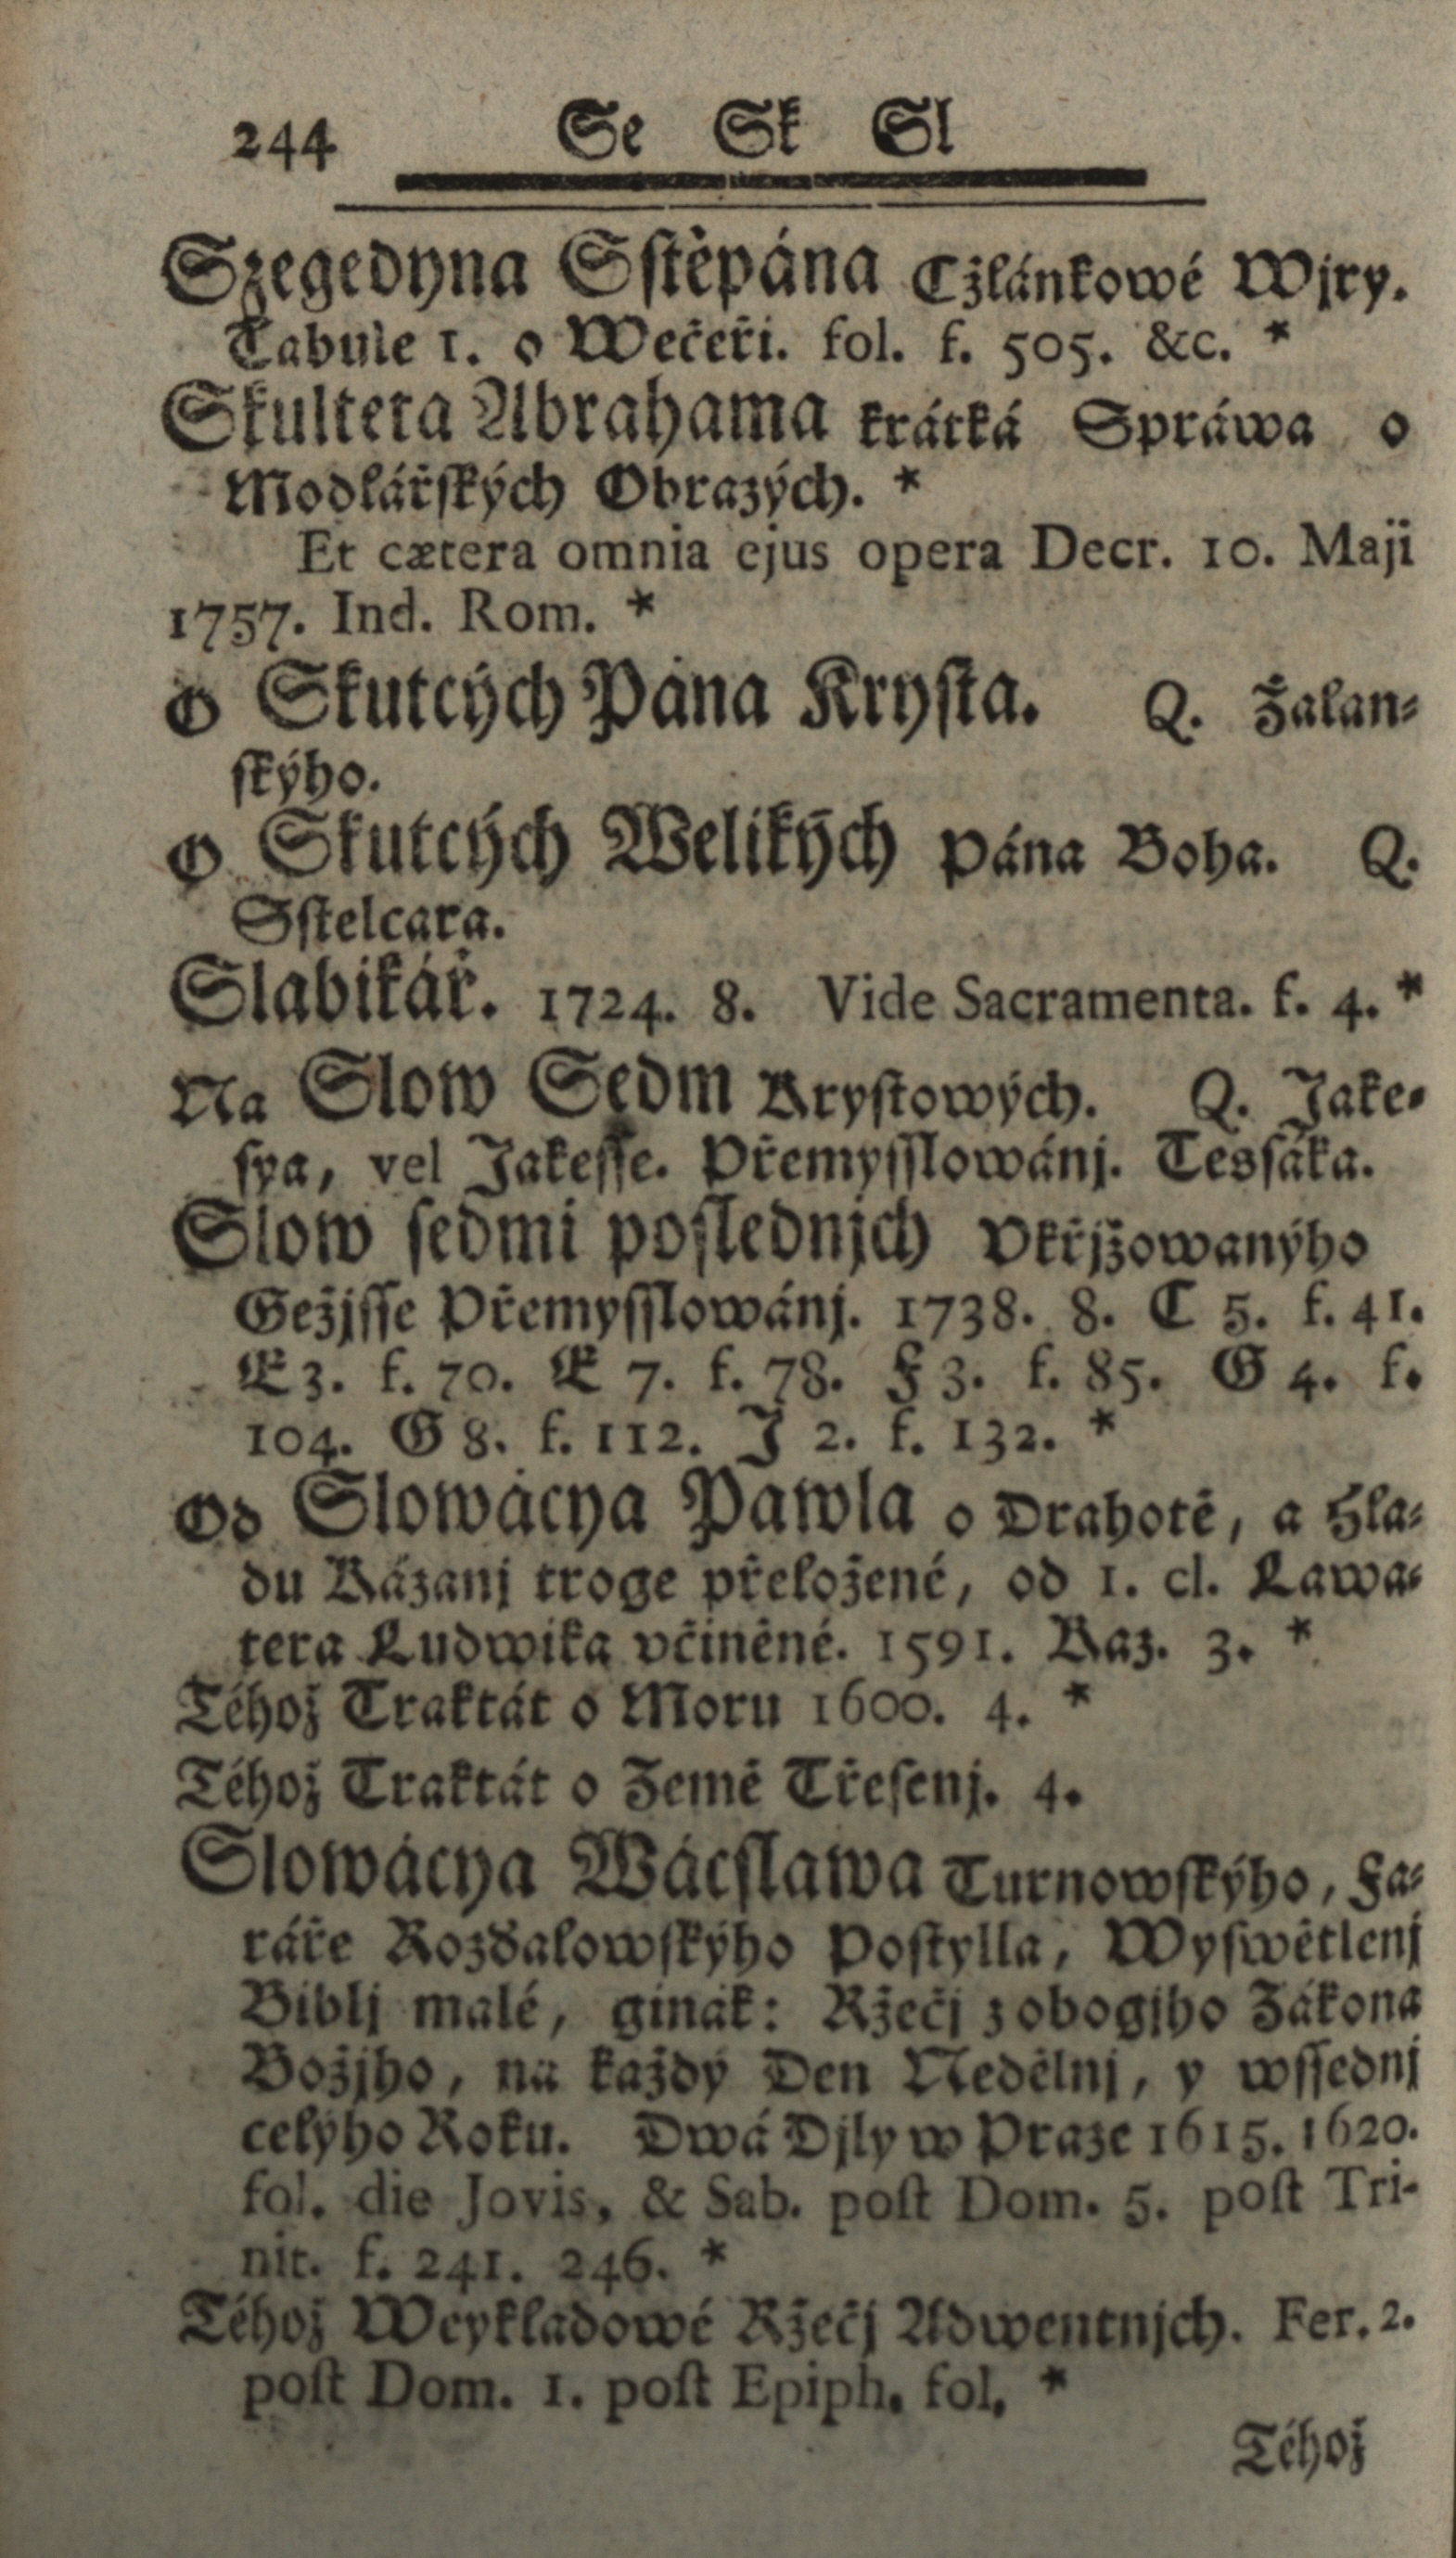 244 Se Sk Sl
Szegedyna Sstěpána Cžlánkowé Wjry.
Tabule 1. o Wečeři. fol. f. 505. &c. *
Skultera Abrahama krátká Spráwa o
Modlářſkých Obrazých. *
Et cætera omnia ejus opera Decr. 10. Maji
1757. Ind. Rom. *
O Skutcých Pána Kryſta. Q. Žalan-
ſkýho.
O Skutcých Welikých Pána Boha. Q.
Sſtelcara.
Slabikář. 1724. 8. Vide Sacramenta. f. 4. *
Na Slow Sedm Kryſtowých. Q. Jake-
ſya, vel Jakeſſe. Přemyſſlowánj. Tesſáka.
Slow ſedmi poſlednjch Vkřjžowanýho
Gežjſſe Přemyſſlowánj. 1738. 8. C 5. f. 41.
E 3. f. 70. E 7. f. 78. F 3. f. 85. G 4. f.
104. G 8. f. 112. J 2. f. 132. *
Od Slowácya Pawla o Drahotě, a Hla-
du Kázanj troge přeložené, od 1. cl. Lawa-
tera Ludwika včiněné. 1591. Kaz. 3. *
Téhož Traktát o Moru 1600. 4. *
Téhož Traktát o Země Třeſenj. 4.
Slowácya Wácſlawa Turnowſkýho, Fa-
ráře Rozďalowſkýho Poſtylla, Wyſwětlenj
Biblj malé, ginák: Ržečj z obogjho Zákona
Božjho, na každý Den Nedělnj, y wſſednj
celýho Roku. Dwá Djly w Praze 1615. 1620.
fol. die Jovis, & Sab. poſt Dom. 5. poſt Tri-
nit. f. 241. 246. *
Téhož Weykladowé Ržečj Adwentnjch. Fer. 2.
poſt Dom. 1. poſt Epiph. fol. *
Téhož